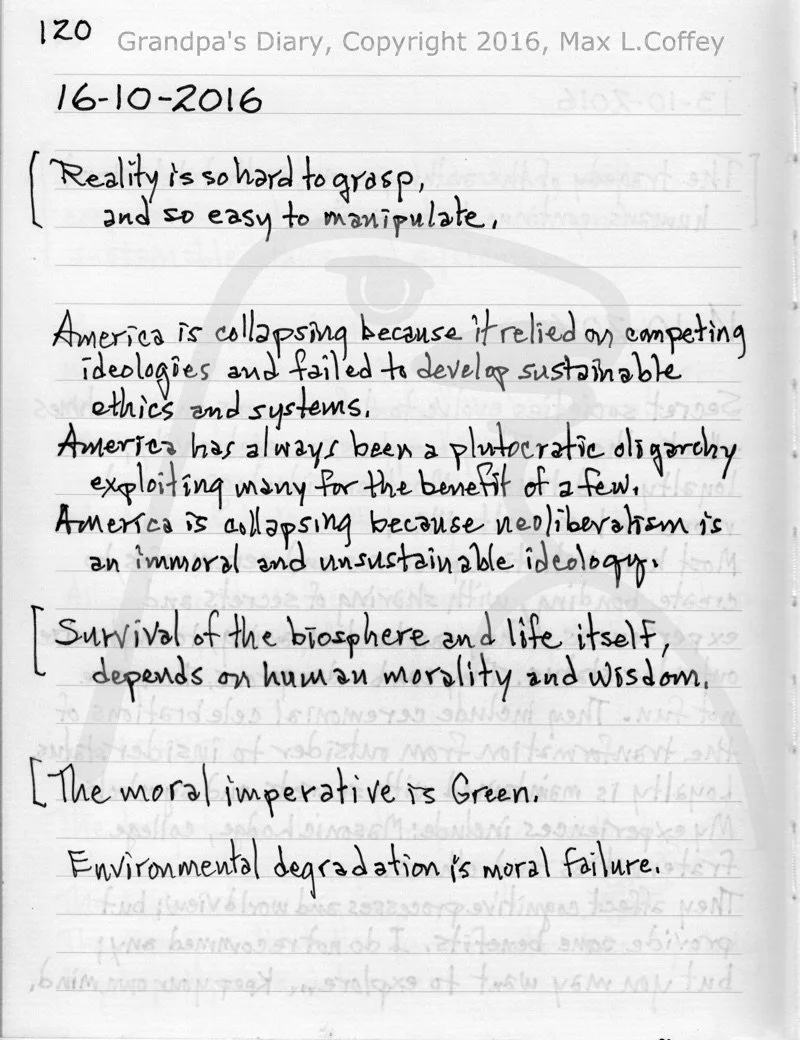 120
Grandpa's Diary, Copyright 2016, Max L.Coffey
16-10-2016
[Reality is so hard to grasp,
and so easy to manipulate.
America is collapsing because it relied on competing
ideologies and failed to develop sustainable
ethics and systems.
America has always been a plutocratic oligarchy
exploiting many for the benefit of a few.
America is collapsing because neoliberalism is
an immoral and unsustainable ideology.
[Survival of the biosphere and life itself,
depends on human morality and wisdom.
[The moral imperative is Green.
Environmental degradation is moral failure.